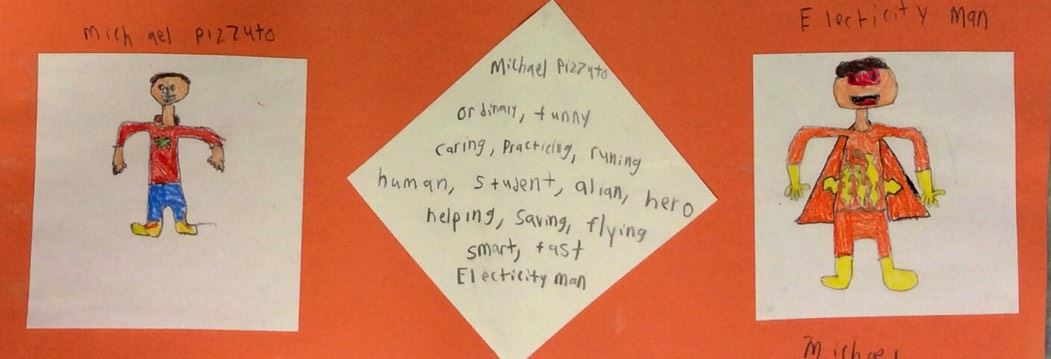 Michael Pizzuto
Michael Pizzuto
ordinary, funny
caring, Practicing, runing
human, student, alian, hero
helping, saving, flying
smart, fast
Electicity man
Electicity Man
Michael